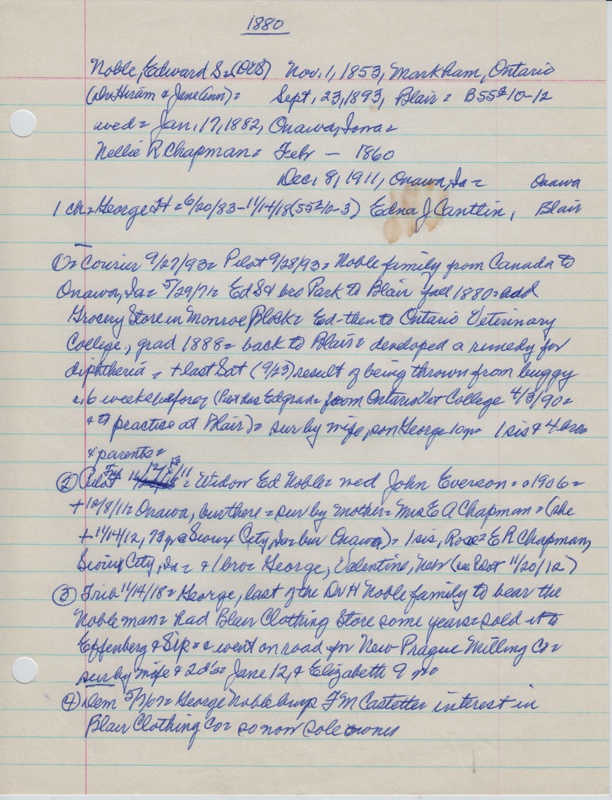 1880
Noble, Edward S. (DVS) Nov. 1, 1853, Markham, Ontario
(Dr. Hiram & Jane Ann) = Sept. 23, 1893, Blair = B55 2 10-12
wed = Jan. 17, 1882, Onawa, Iowa =
Nellie R Chapman = Febr — 1860
Dec. 8, 1911, Onawa, Ia = Onawa
1 ch = George H = 6/20/83 - 11/14/18 (55 2 10-3) Edna J Cantlin, Blair
① = Courier 9/27/93 = Pilot 9/28/93 = Noble family from Canada to
Onawa, Ia = 5/29/71 = Ed S & bro Park to Blair Fall 1880 =
Grocery Store in Monroe Block = Ed - then to Ontario Veterinary
College, grad 1888 = back to Blair = developed a remedy for
diphtheria = + last Sat (9/23) result of being thrown from buggy
6 weeks before = (Ed grad from Ontario Vet College 4/3/90 =
& to practice at Blair) = sur by wife, son George 10 yr = 1 sis & 4 bros
& parents =
② Pilot = Widow Ed Noble = wed John Everson = 1906 =
+ 12/8/11 = Onawa, bur there = sur by mother = Mrs E A Chapman = (she
+ 11/14/12, 73 yr, @ Sioux City, Ia = bur Onawa) = 1 sis, Rose = E R Chapman,
Sioux City, Ia = & 1 bro = George, Valentine, Nebr (see Pilot 11/20/12)
③ Trib 11/14/18 = George, last of the Dr H Noble family to bear the
Noble name = had Blair Clothing Store some years = sold it to
Effenberg & Sip = & went on road for New Prague Milling Co =
sur by wife & 2 d's = Jane 12, & Elizabeth 9 mo
④ Dem 5/7/07 = George Noble buys F M Castetter interest in
Blair Clothing Co = so now sole owner